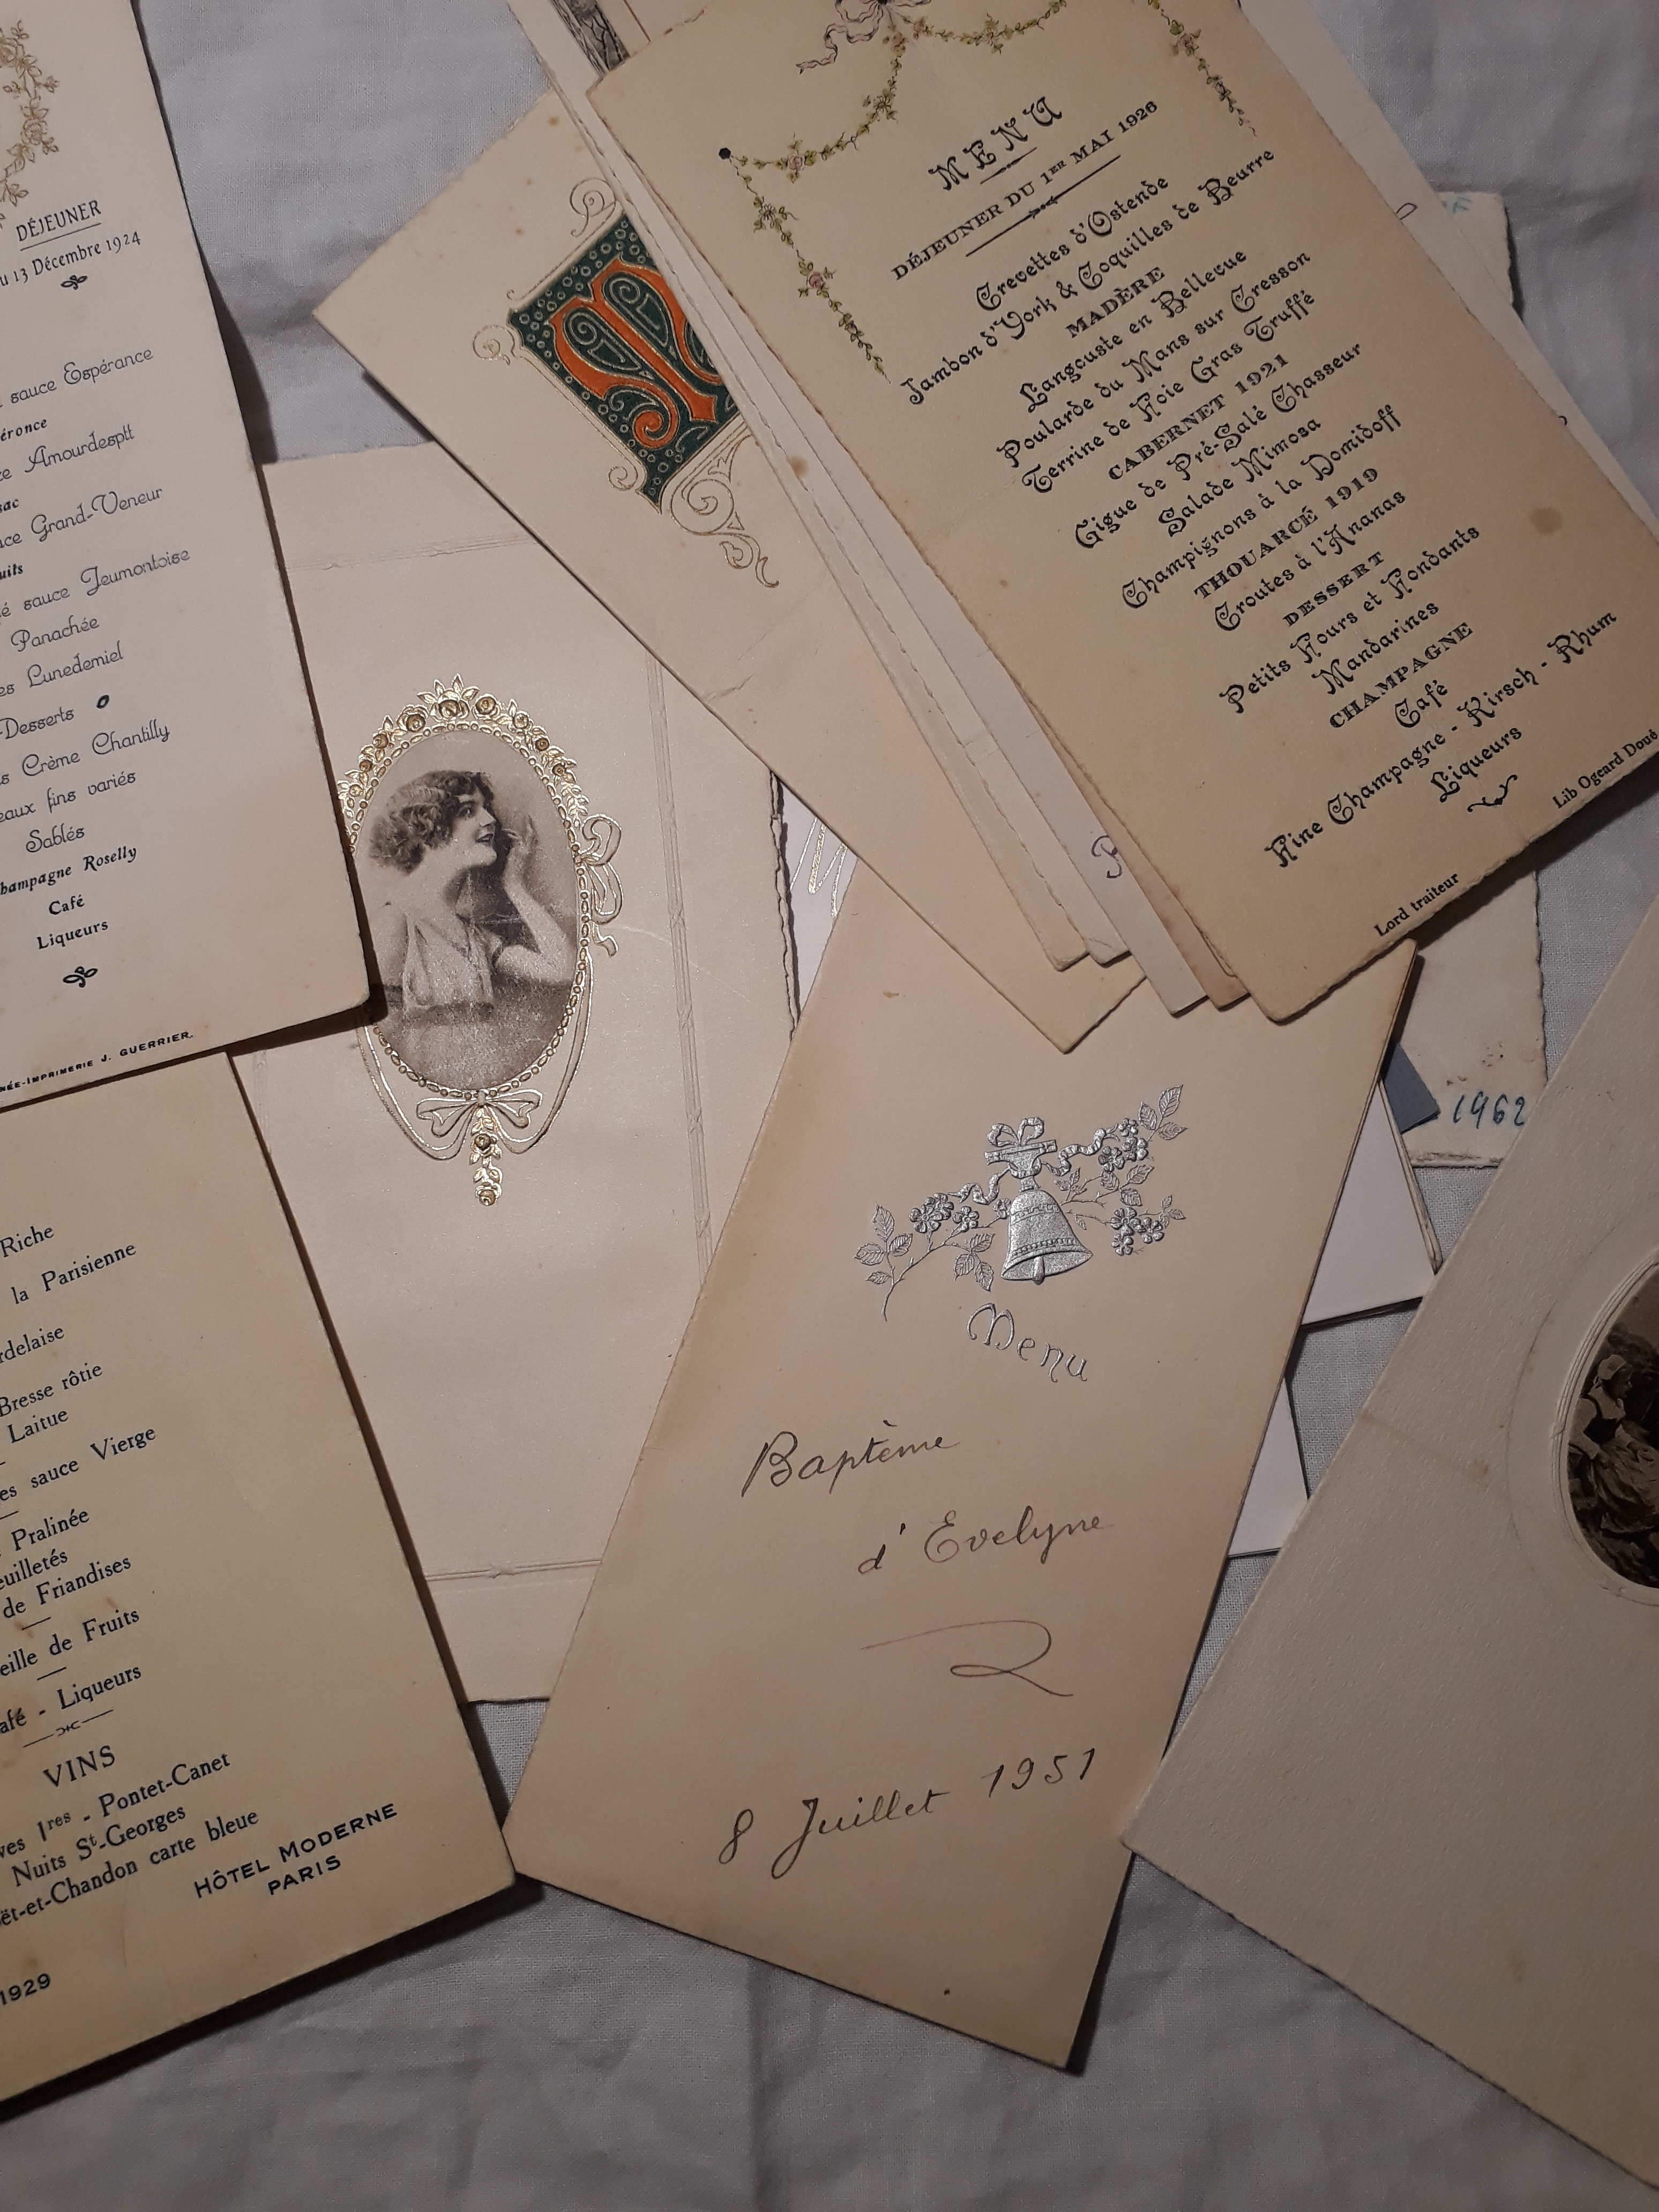 DÉJEUNER
13 Décembre 1924
sauce Espérance
Amourdesptt
Grand-Veneur
sauce Jeumontoise
Panachée
Lunedemiel
Desserts
Crème Chantilly
fins variés
Sablés
Champagne Roselly
Café
Liqueurs
IMPRIMERIE J. GUERRIER.
MENU
DÉJEUNER DU 1ER MAI 1926
Crevettes d'Ostende
Jambon d'York & Coquilles de Beurre
MADÈRE
Langouste en Bellevue
Poularde du Mans sur Cresson
Terrine de Foie Gras Truffé
CABERNET 1921
Gigue de Pré-Salé Chasseur
Salade Mimosa
Champignons à la Domidoff
THOUARCÉ 1919
Croutes à l'Ananas
DESSERT
Petits Fours et Fondants
Mandarines
CHAMPAGNE
Café
Fine Champagne - Kirsch - Rhum
Liqueurs
Lord traiteur
Lib Ogeard Doué
1962
Riche
la Parisienne
rdelaise
Bresse rôtie
Laitue
sauce Vierge
Pralinée
euilletés
de Friandises
eille de Fruits
afé - Liqueurs
VINS
ves 1res - Pontet-Canet
Nuits St-Georges
ët-et-Chandon carte bleue
HÔTEL MODERNE
PARIS
1929
Menu
Baptème
d'Evelyne
8 Juillet 1951